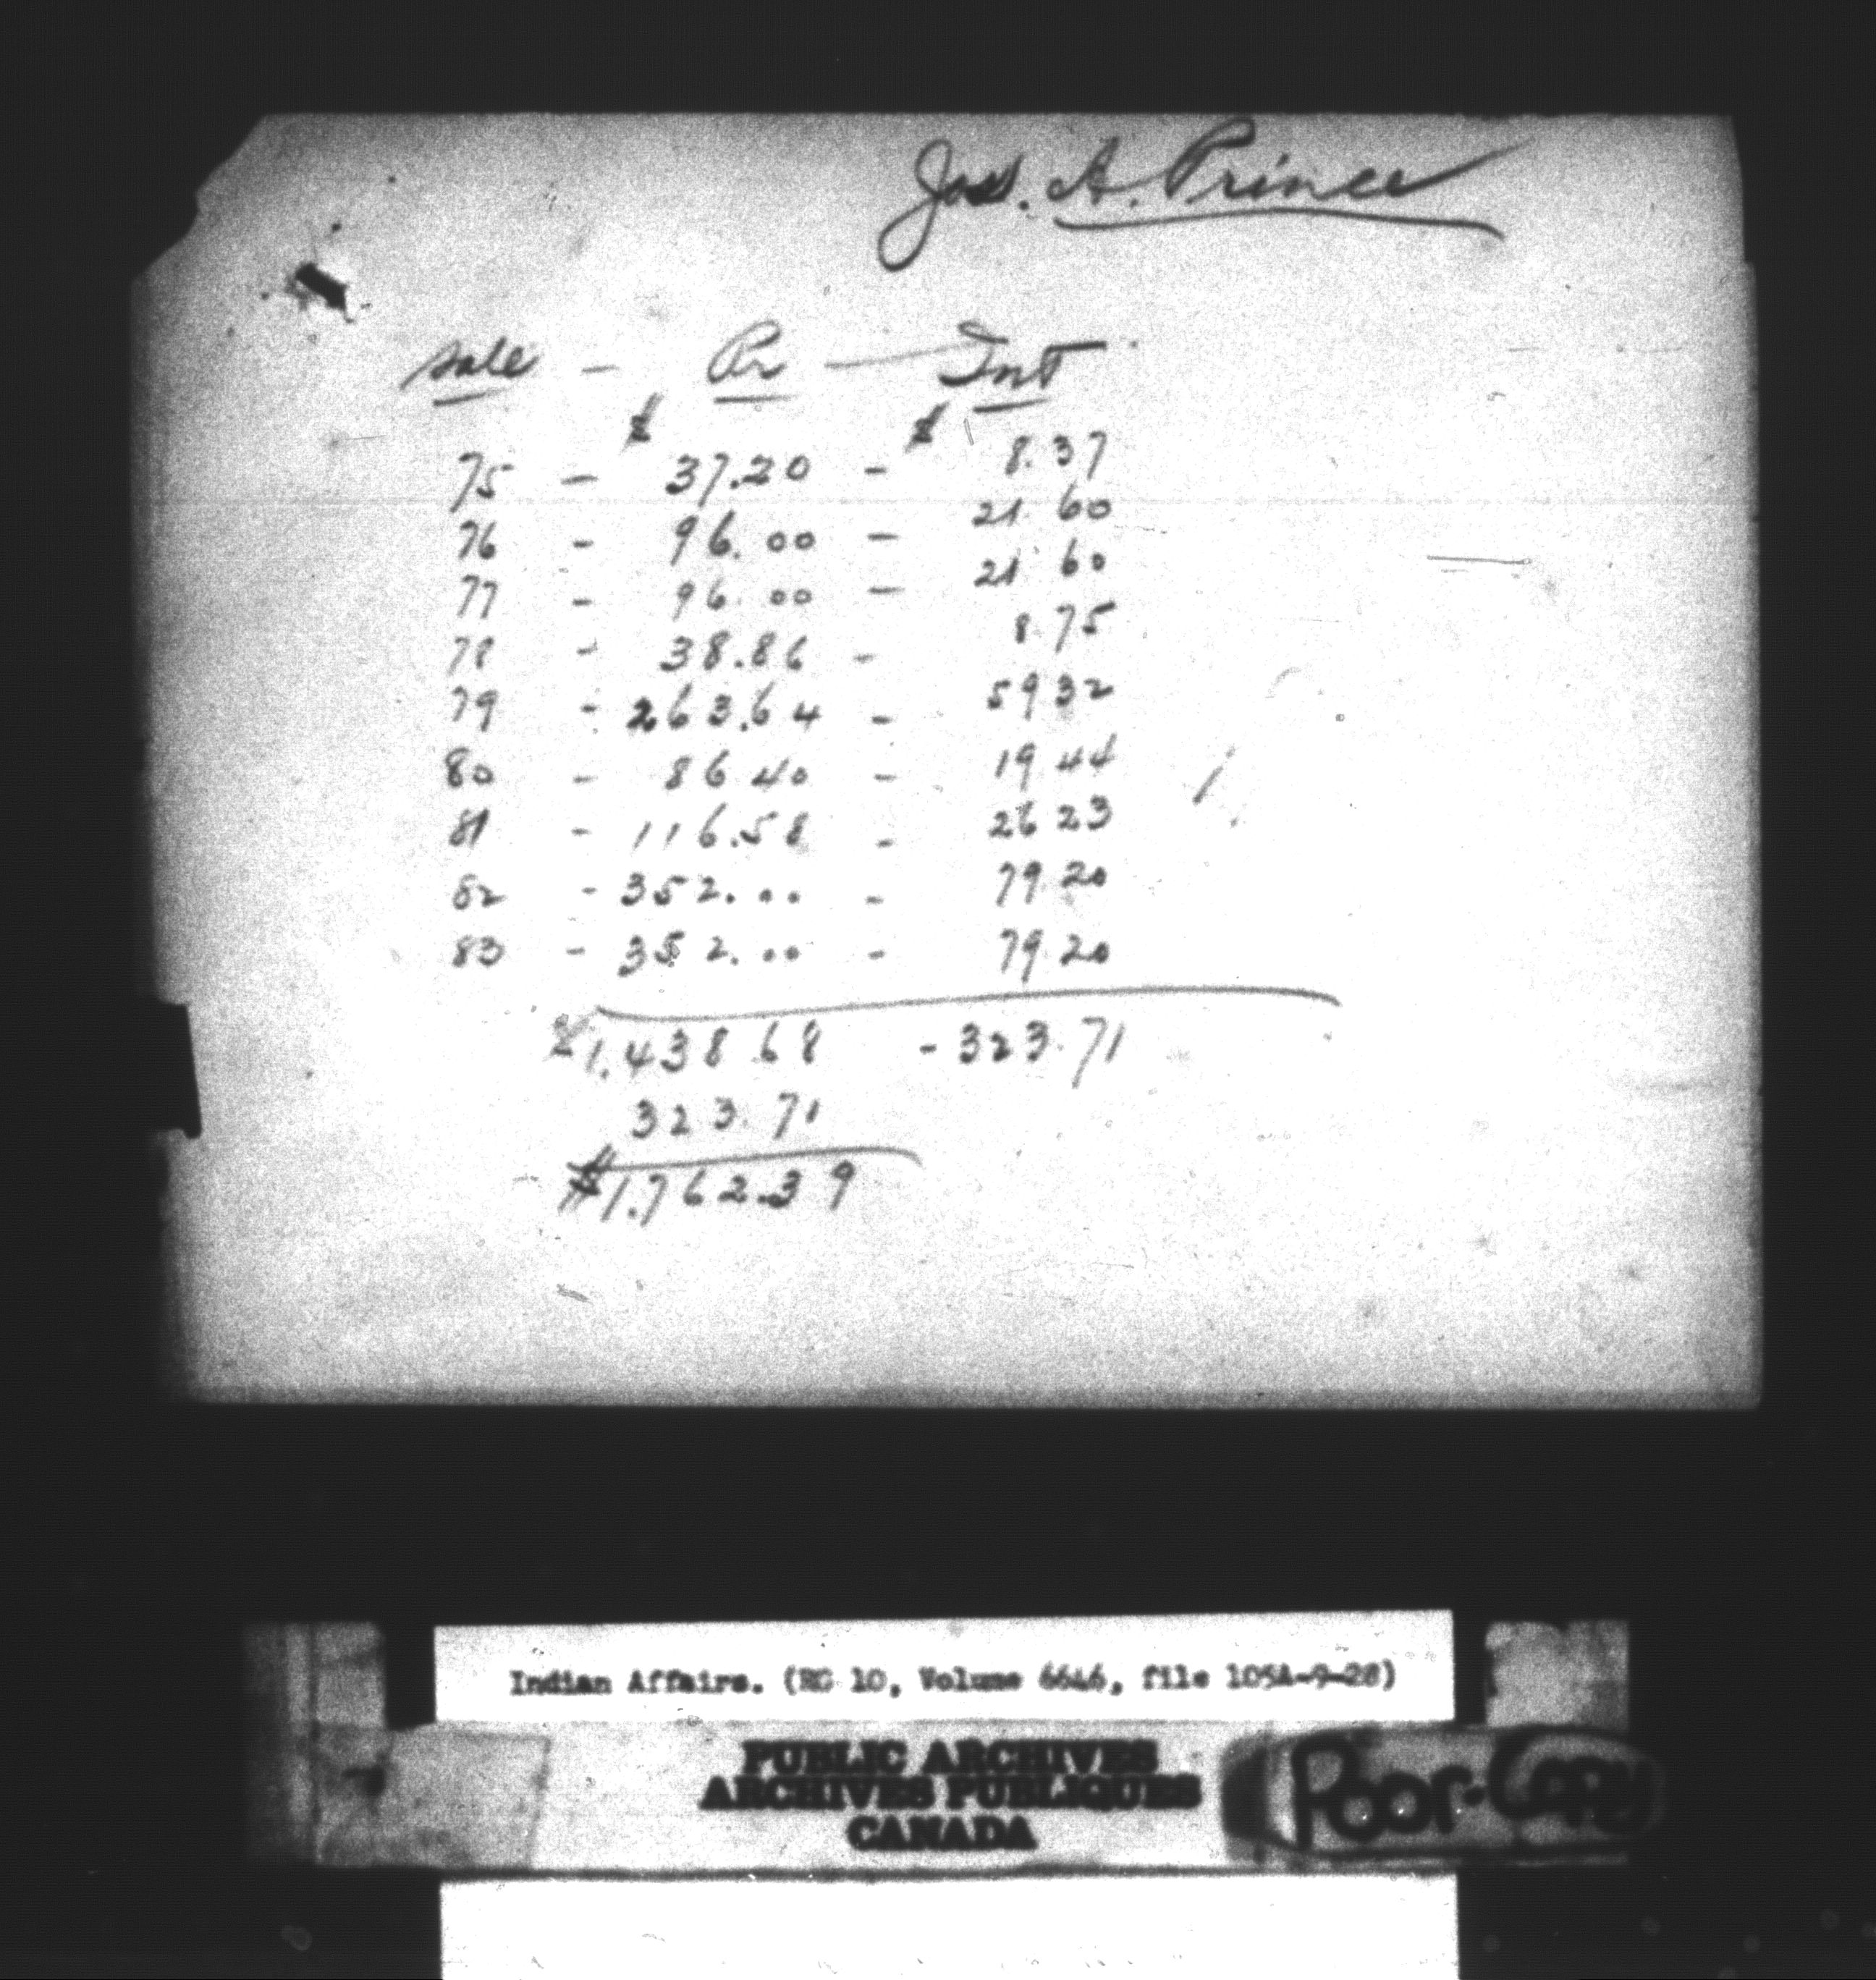 Jas. A. Prince
Sale - Pr - Int
$ $
75 - 37.20 - 8.37
76 - 96.00 - 21.60
77 - 96.00 - 21 60
78 - 38.86 - 8.75
79 - 263.64 - 59 32
80 - 86 40 - 19.44
81 - 116.58 - 26 23
82 - 352.00 - 79.20
83 - 352.00 - 79.20
$1,438.68 - 323.71
323.71
$1,762.39
Indian Affairs. (RG 10, Volume 6646, file 105A-9-28)
PUBLIC ARCHIVES
ARCHIVES PUBLIQUES
CANADA
Poor-Copy